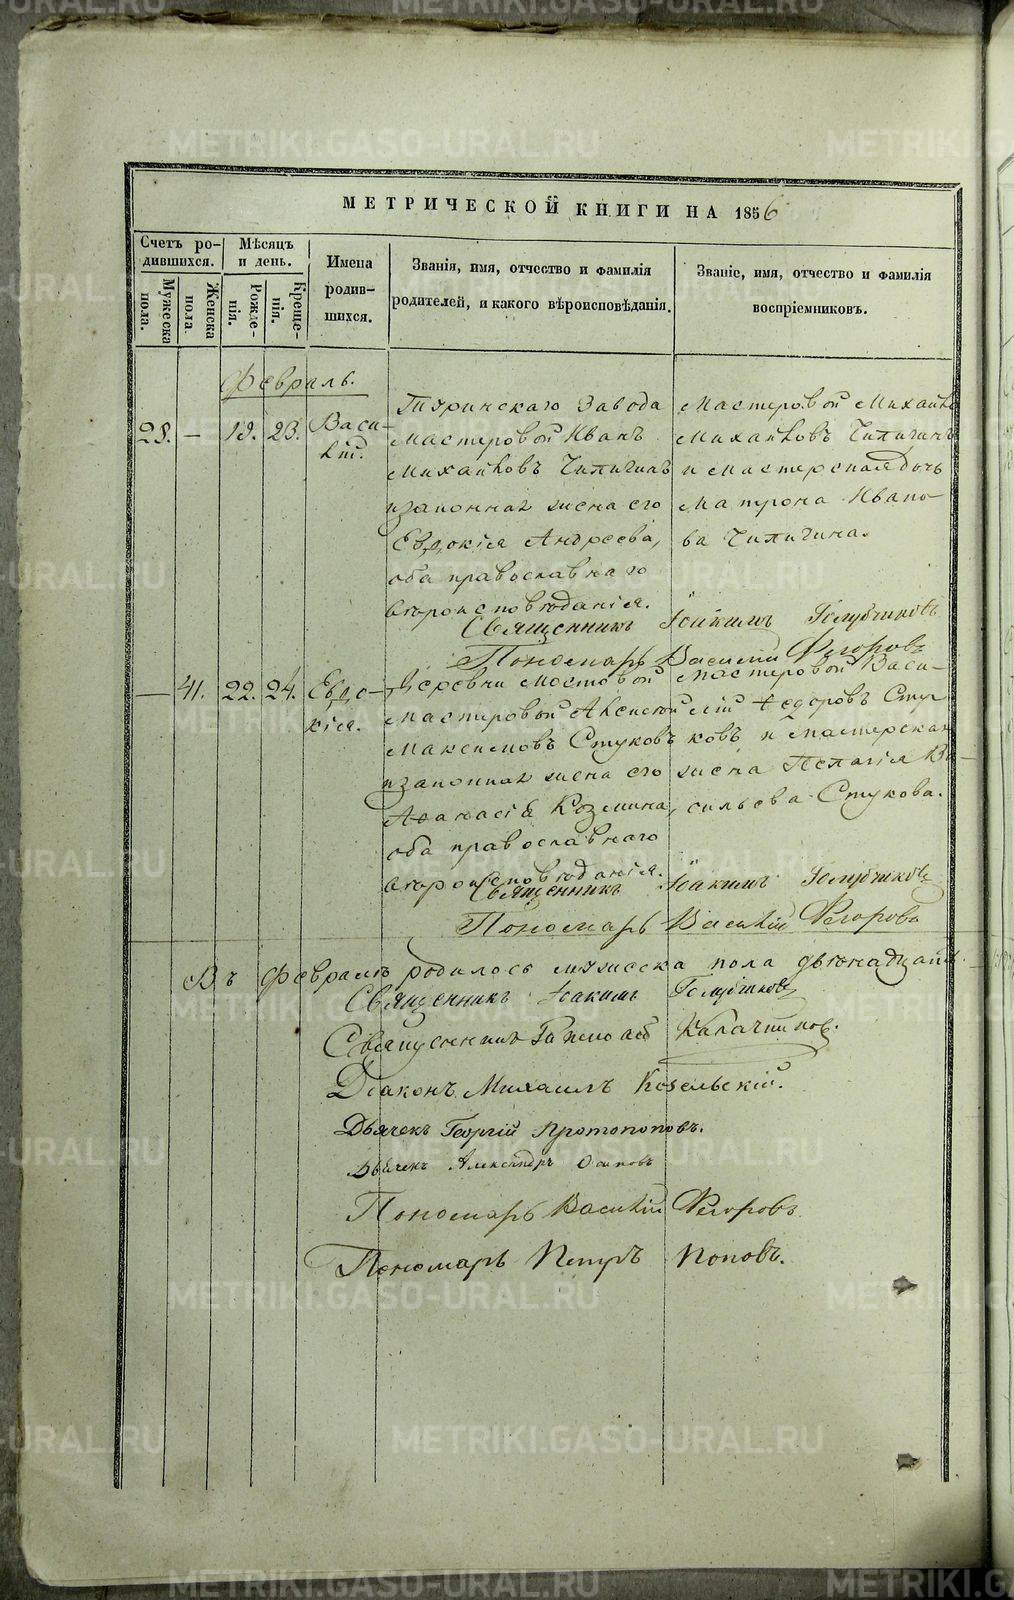 МЕТРИЧЕСКОЙ КНИГИ НА 1856
Счетъ родившихся.
Мѣсяцъ и день.
Имена родившихся.
Званія, имя, отчество и фамилія родителей, и какого вѣроисповѣданія.
Званіе, имя, отчество и фамилія воспріемниковъ.
Мужеска пола.
Женска пола.
Рожденія.
Крещенія.
Февраль.
28. — 19. 23. Василій.
Туринскаго Завода
мастеровой Иванъ
Михайловъ Чипигинъ
и законная жена его
Евдокія Андреева,
оба православнаго
вѣроисповѣданія.
Мастеровой Михайло
Михайловъ Чипигинъ
и мастерская дочь
Матрона Ивано-
ва Чипигина.
Священникъ Іоакимъ Голубчиковъ
Пономарь Василій Ѳегоровъ
— 41. 22. 24. Евдокія.
Деревни Мостовой
мастеровой Аксеной
Максимовъ Стуковъ
и законная жена его
Аѳанасія Козмина,
оба православнаго
вѣроисповѣданія.
мастеровой Васи-
лій Ѳедоровъ Сту-
ковъ и мастерская
жена Пелагія Ва-
сильева Стукова.
Священникъ Іоакимъ Голубчиковъ
Пономарь Василій Ѳегоровъ
Въ Февралѣ родилось мужеска пола двѣнадцать.
Священникъ Іоакимъ Голубчиковъ
Священникъ Калачниковъ.
Діаконъ Михаилъ Козельскій.
Дьячекъ Георгій Протопоповъ.
Дьячекъ Александръ Осиповъ
Пономарь Василій Ѳегоровъ
Пономарь Петръ Поповъ.
METRIKI.GASO-URAL.RU